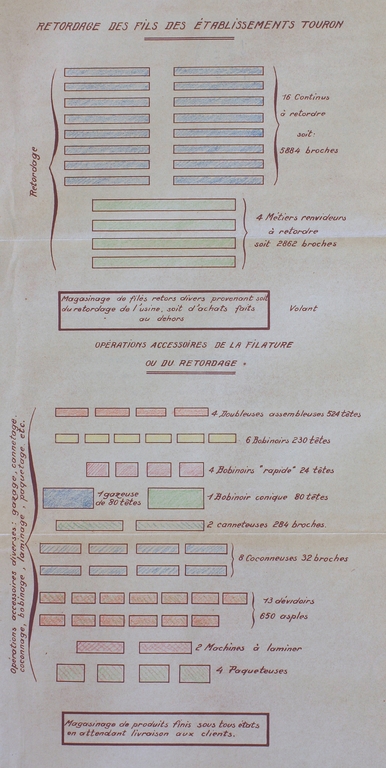 RETORDAGE DES FILS DES ÉTABLISSEMENTS TOURON
Retordage
16 Continus
à retordre
soit:
5884 broches
4 Métiers renvideurs
à retordre
soit 2862 broches
Magasinage de filés retors divers provenant soit
du retordage de l'usine, soit d'achats faits
au dehors
Volant
OPÉRATIONS ACCESSOIRES DE LA FILATURE
OU DU RETORDAGE
Opérations accessoires diverses: gazage, cannetage,
coconnage, bobinage, laminage, paquetage, etc.
4 Doubleuses assembleuses 524 têtes
6 Bobinoirs 230 têtes
4 Bobinoirs "rapide" 24 têtes
1 gazeuse
de 80 têtes
1 Bobinoir conique 80 têtes
2 canneteuses 284 broches.
8 Coconneuses 32 broches
13 dévidoirs
650 asples
2 Machines à laminer
4 Paqueteuses
Magasinage de produits finis sous tous états
en attendant livraison aux clients.